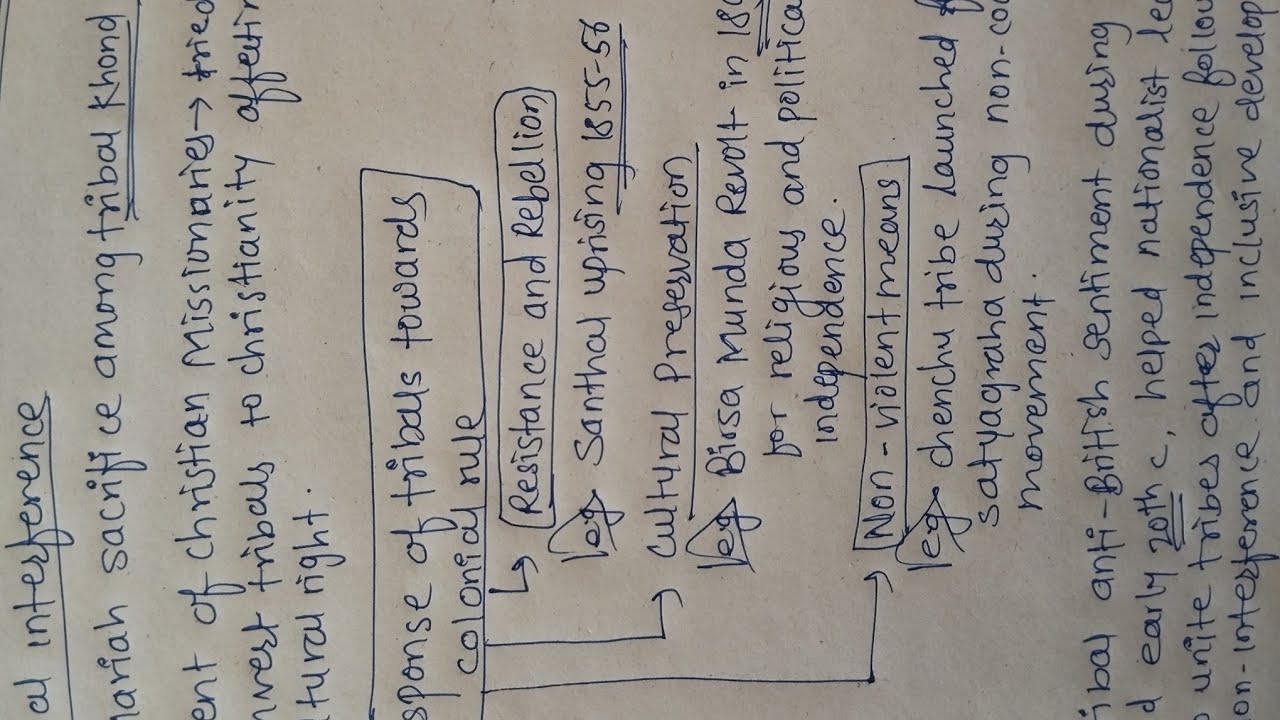 al interference
ariah sacrifice among tribal Khond
ent of christian Missionaries → tried
nvert tribals to christianity affectin
tural right.
sponse of tribals towards
colonial rule
Resistance and Rebellion
eg Santhal uprising 1855-56
Cultural Preservation
eg Birsa Munda Revolt in 18
for religious and politica
independence.
Non-violent means
eg chenchu tribe launched f
satyagraha during non-coo
movement.
ibal anti-British sentiment during
d early 20th c, helped nationalist lea
unite tribes after independence follow
on-interference and inclusive develop